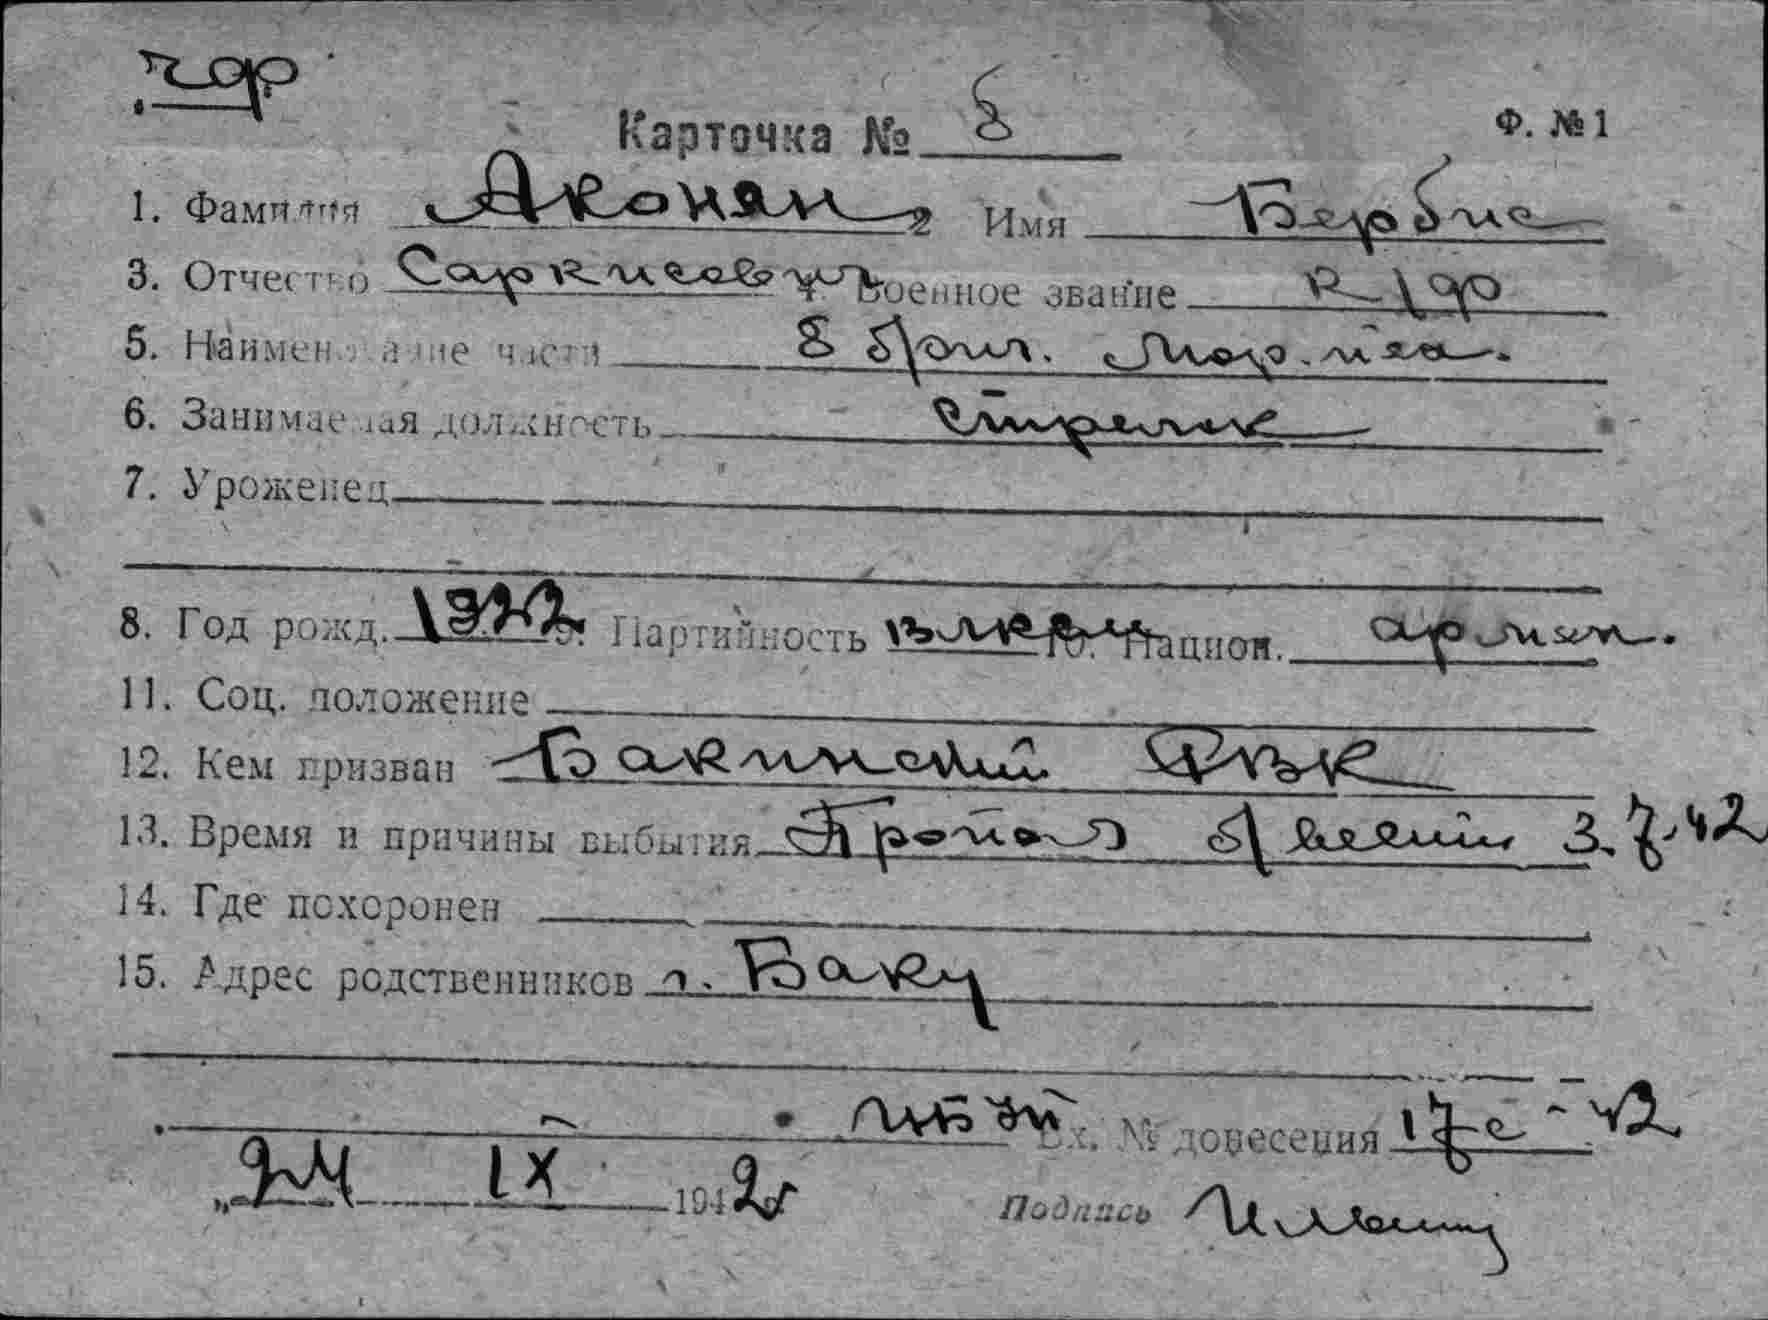 чф
Карточка № 8 Ф. № 1
1. Фамилия Аконян 2 Имя Бербис
3. Отчество Саркисович 4. Военное звание К/ф
5. Наименование части 8 бриг. мор. пех.
6. Занимаемая должность стрелок
7. Уроженец
8. Год рожд. 1922 9. Партийность ВЛКСМ 10. Национ. армян.
11. Соц. положение
12. Кем призван Бакинский РВК
13. Время и причины выбытия Пропал б/вести 3.7.42
14. Где похоронен
15. Адрес родственников г. Баку
Вх. № донесения 17с - 42
„24 IX 1942
Подпись